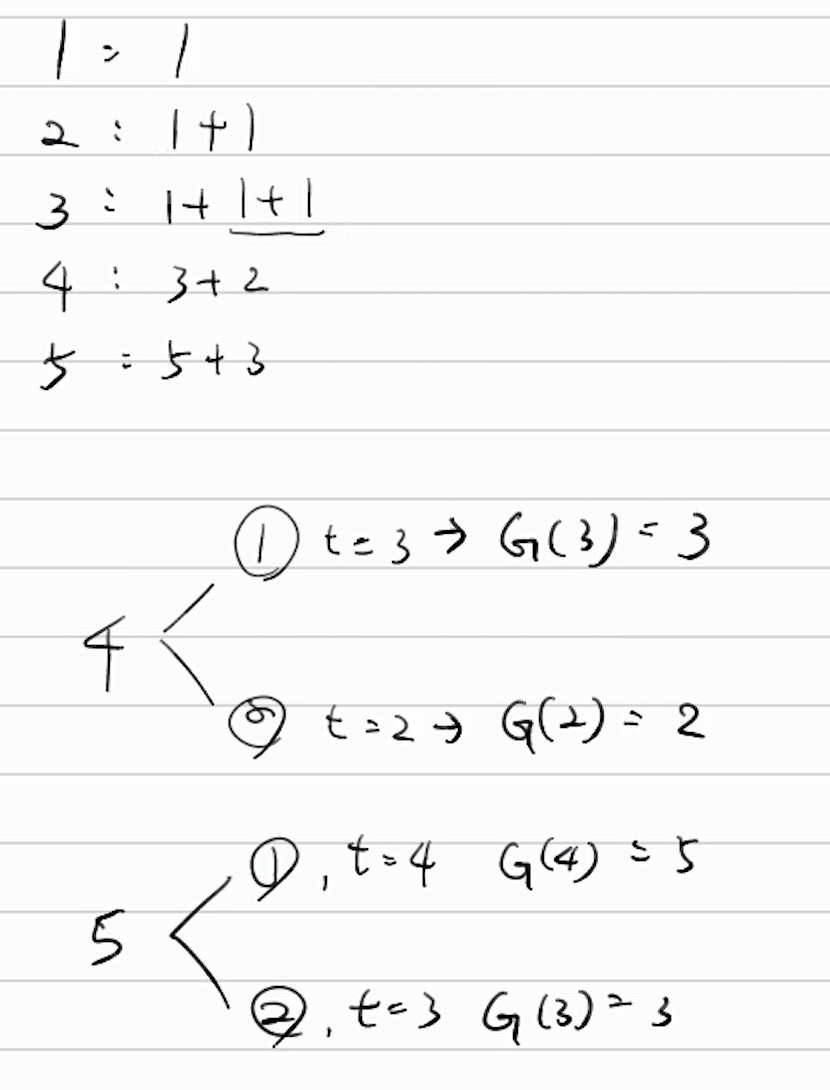 1 = 1
2 : 1+1
3 : 1+ 1+1
4 : 3+2
5 = 5+3
① t=3 → G(3) = 3
4
② t=2 → G(2) = 2
①, t=4 G(4) = 5
5
②, t=3 G(3) = 3